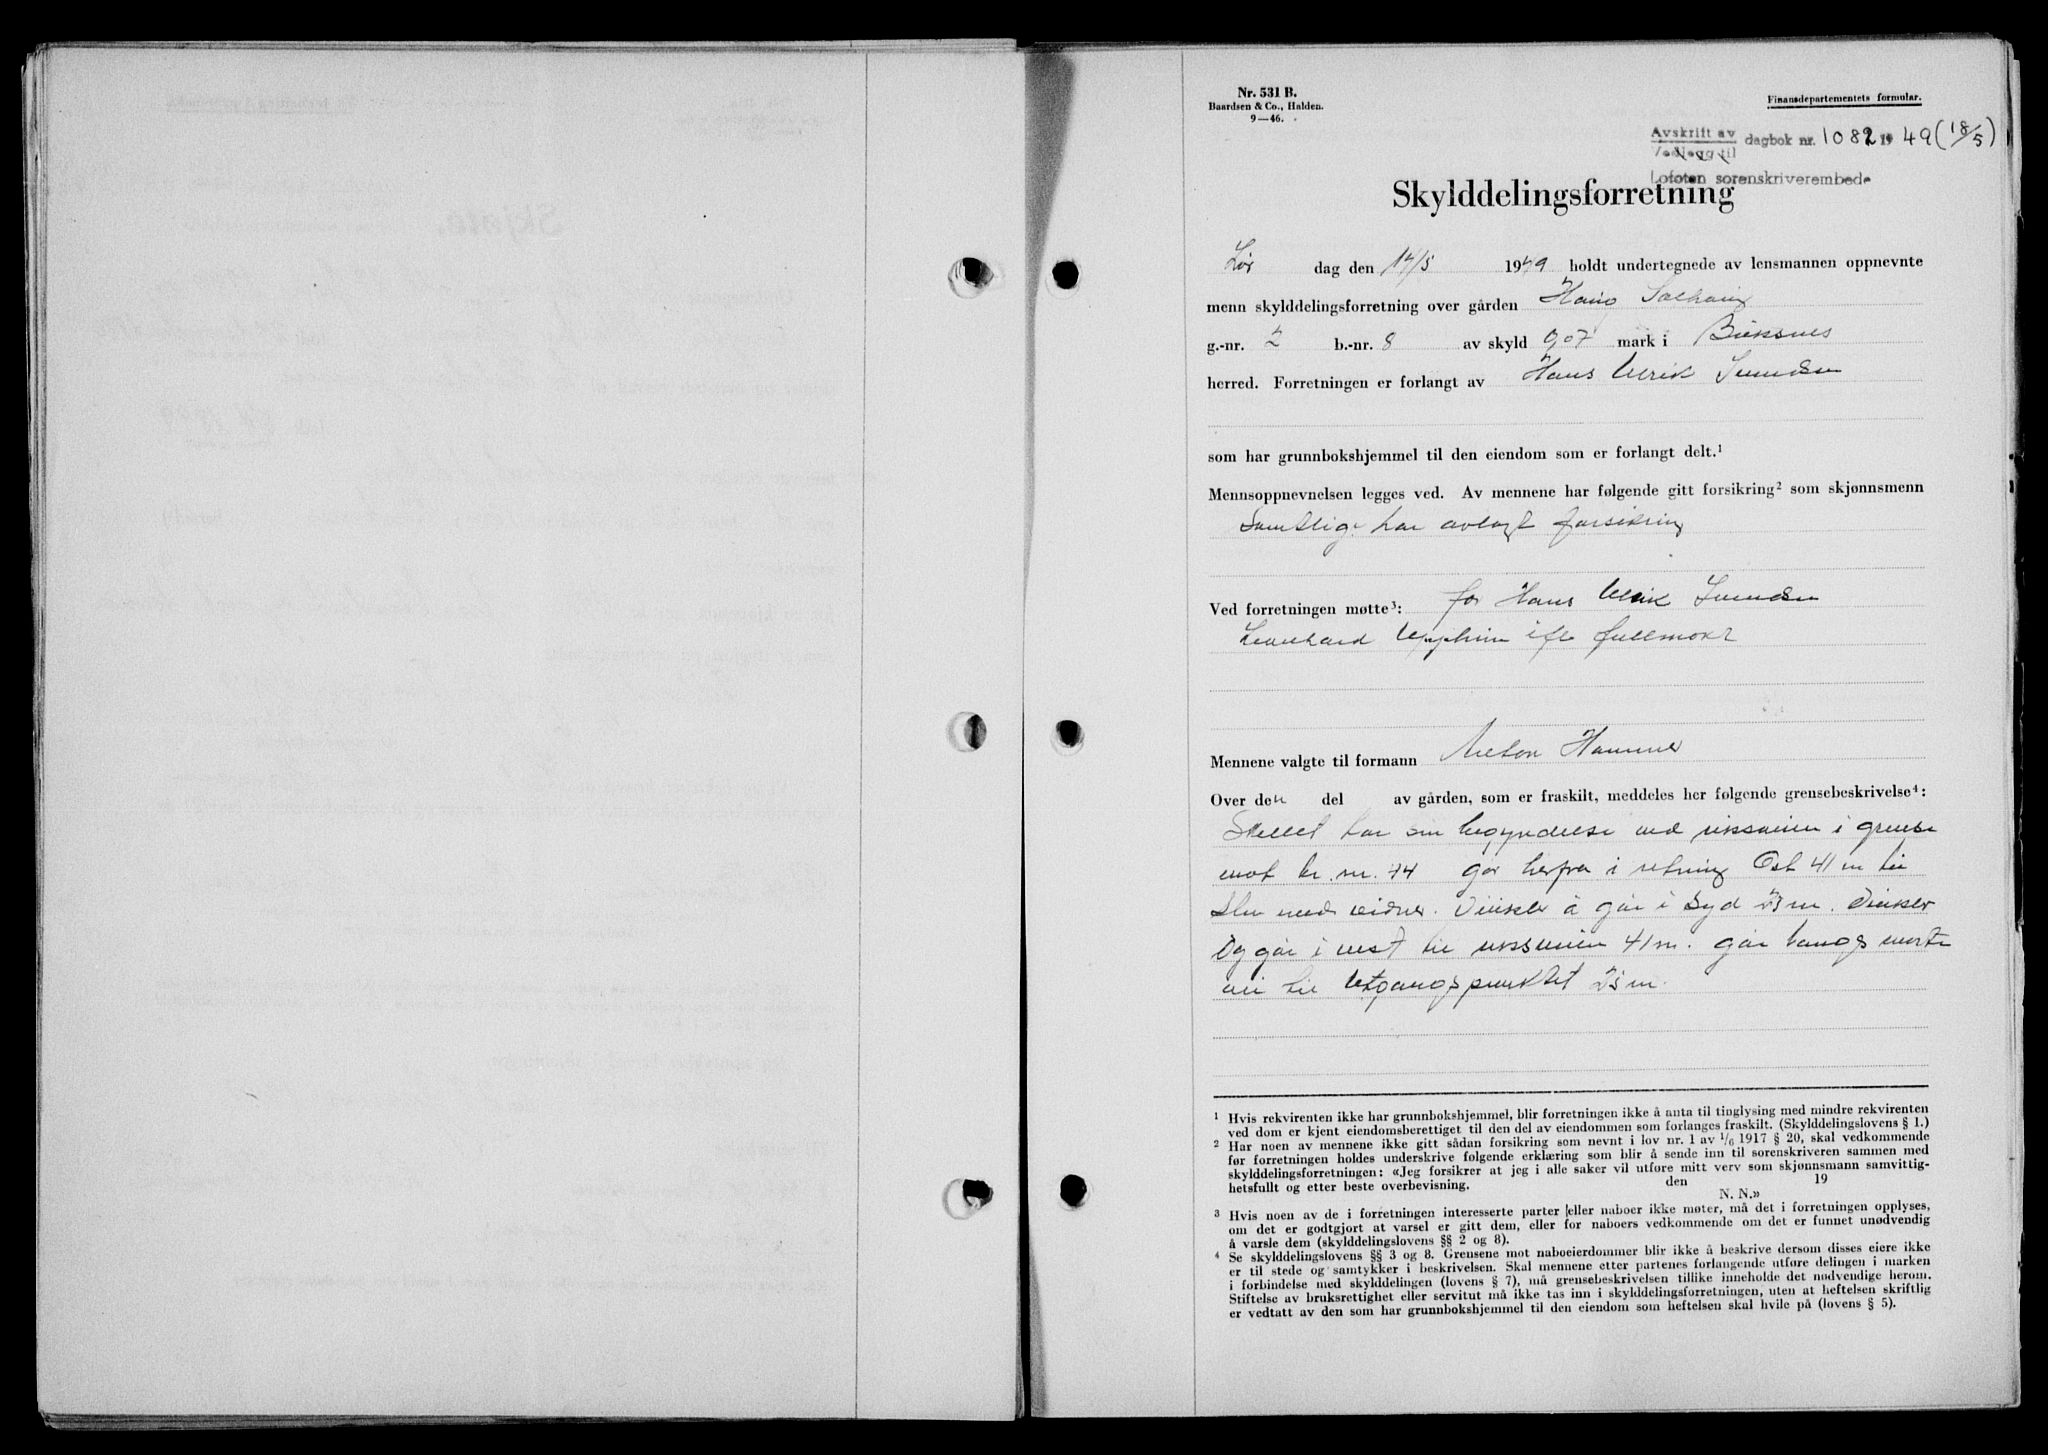 Nr. 531 B.
Baardsen & Co., Halden.
9—46.
Finansdepartementets formular.
Avskrift av dagbok nr. 1082 19 49 (18/5)
Vedlegg til
Lofoten sorenskriverembede
Skylddelingsforretning
Lør dag den 14/5 1949 holdt undertegnede av lensmannen oppnevnte
menn skylddelingsforretning over gården Haug
g.-nr. 2 b.-nr. 8 av skyld 907 mark i Buksnes
herred. Forretningen er forlangt av Hans Ulrik
som har grunnbokshjemmel til den eiendom som er forlangt delt.¹
Mennsoppnevnelsen legges ved. Av mennene har følgende gitt forsikring² som skjønnsmenn
Samtlige har avlagt forsikring
Ved forretningen møtte³: for Hans Ulrik
Leonhard ifl fullmakt
Mennene valgte til formann Anton Hammer
Over den del av gården, som er fraskilt, meddeles her følgende grensebeskrivelse⁴:
Skellet har sin begyndelse ved riksveien i grense
mot br. nr. 74 går herfra i retning Ost 41 m til
Sten med vidner. Vinkler å går i Syd 25 m. Vinkler
Og går i vest til riksveien 41 m. går langs
vei til Utgangspunktet 25 m.
¹ Hvis rekvirenten ikke har grunnbokshjemmel, blir forretningen ikke å anta til tinglysing med mindre rekvirenten
ved dom er kjent eiendomsberettiget til den del av eiendommen som forlanges fraskilt. (Skylddelingslovens § 1.)
² Har noen av mennene ikke gitt sådan forsikring som nevnt i lov nr. 1 av 1/6 1917 § 20, skal vedkommende
før forretningen holdes underskrive følgende erklæring som blir å sende inn til sorenskriveren sammen med
skylddelingsforretningen: «Jeg forsikrer at jeg i alle saker vil utføre mitt verv som skjønnsmann samvittig-
hetsfullt og etter beste overbevisning. den 19
N. N.»
³ Hvis noen av de i forretningen interesserte parter eller naboer ikke møter, må det i forretningen opplyses,
om det er godtgjort at varsel er gitt dem, eller for naboers vedkommende om det er funnet unødvendig
å varsle dem (skylddelingslovens §§ 2 og 8).
⁴ Se skylddelingslovens §§ 3 og 8. Grensene mot naboeierdommer blir ikke å beskrive dersom disses eiere ikke
er til stede og samtykker i beskrivelsen. Skal mennene etter partenes forlangende utføre delingen i marken
i forbindelse med skylddelingen (lovens § 7), må grensebeskrivelsen tillike inneholde det nødvendige herom.
Stiftelse av bruksrettighet eller servitut må ikke tas inn i skylddelingsforretningen, uten at heftelsen skriftlig
er vedtatt av den som har grunnbokshjemmel til den eiendom som heftelsen skal hvile på (lovens § 5).